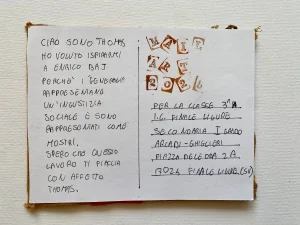 CIAO SONO THOMAS
HO VOLUTO ISPIRARMI
A ENRICO BAJ
PERCHÈ I GENERALI
RAPPRESENTANO
UN'INGIUSTIZIA
SOCIALE E SONO
RAPPRESENTATI COME
MOSTRI.
SPERO CHE QUESTO
LAVORO TI PIACCIA
CON AFFETTO
THOMAS.
MAIL
ART
2026
PER LA CLASSE 3ªA
I.C. FINALE LIGURE
SECONDARIA I GRADO
ARCADI-GHIGLIERI
PIAZZA DELEDDA 2A
17024 FINALE LIGURE (SV)